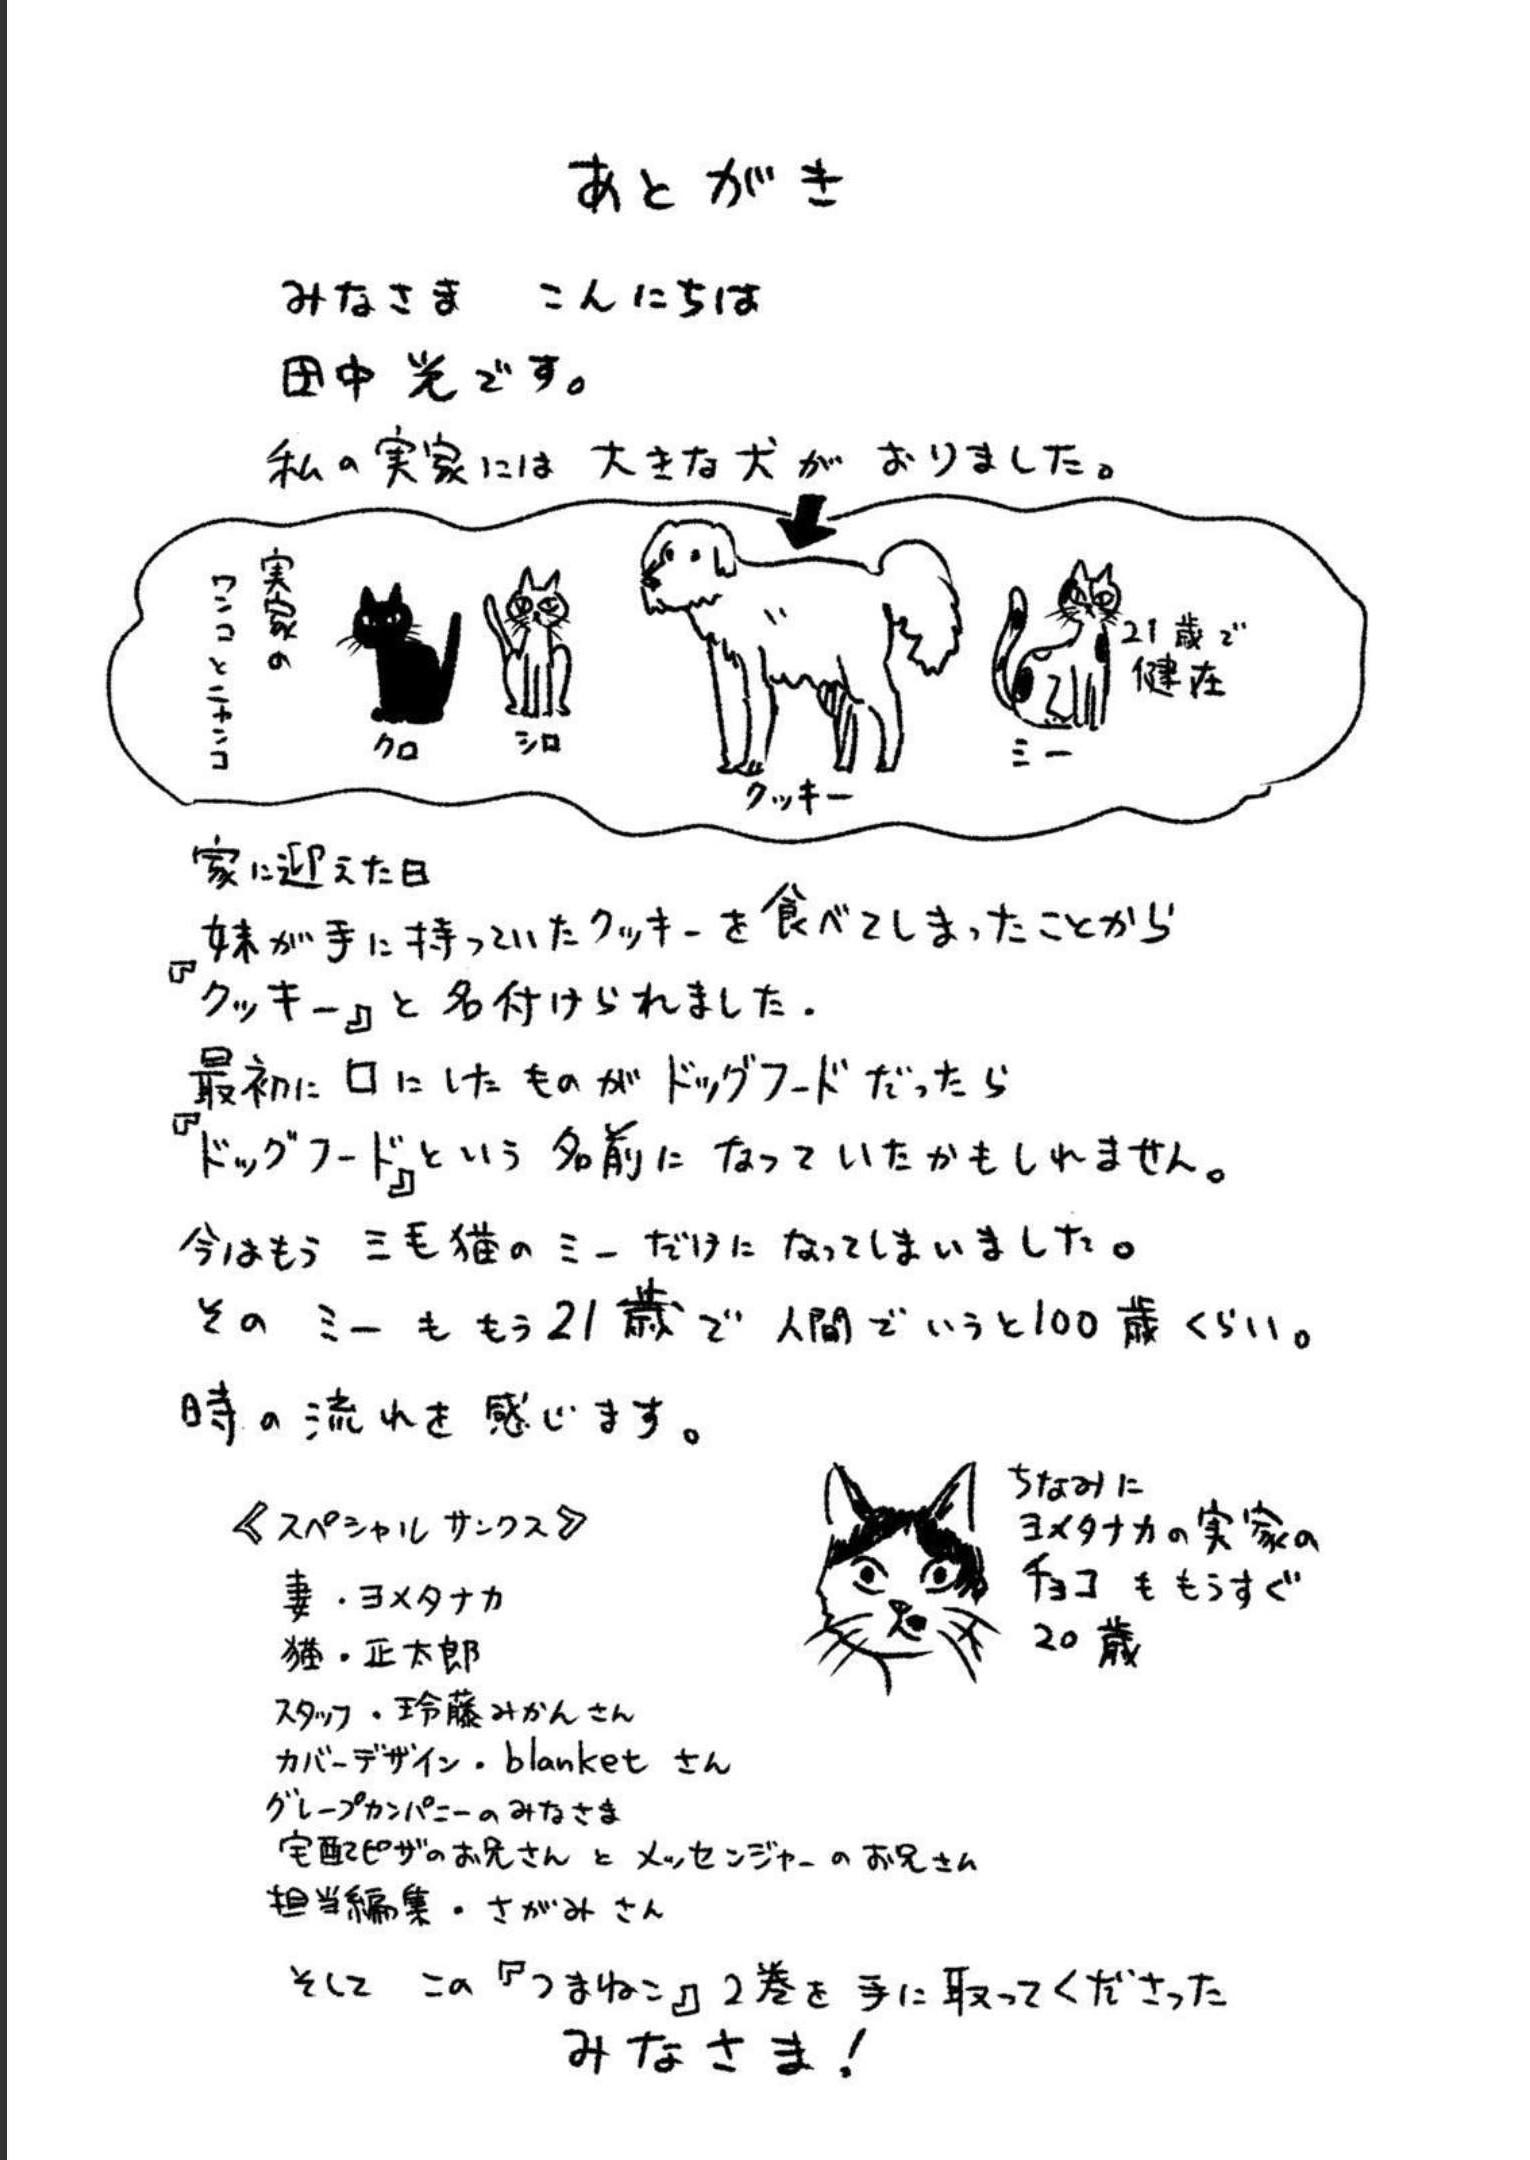 あとがき
みなさま　こんにちは
田中光です。
私の実家には大きな犬がおりました。
実家の
ワンコとニャンコ
クロ
シロ
クッキー
ミー
21歳で
健在
家に迎えた日
妹が手に持っていたクッキーを食べてしまったことから
『クッキー』と名付けられました.
最初に口にしたものがドッグフードだったら
『ドッグフード』という名前になっていたかもしれません。
今はもう三毛猫のミーだけになってしまいました。
そのミーももう21歳で人間でいうと100歳くらい。
時の流れを感じます。
ちなみに
ヨメタナカの実家の
チョコももうすぐ
20歳
《スペシャルサンクス》
妻・ヨメタナカ
猫・正太郎
スタッフ・玲藤みかんさん
カバーデザイン・blanketさん
グレープカンパニーのみなさま
宅配ピザのお兄さんとメッセンジャーのお兄さん
担当編集・さがみさん
そしてこの『つまねこ』2巻を手に取ってくださった
みなさま!